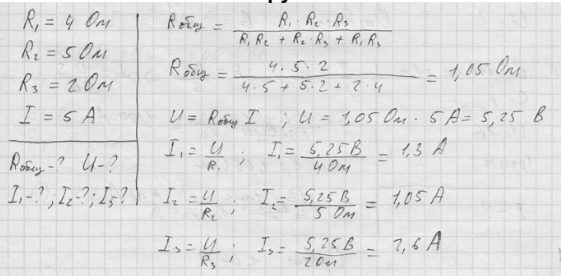 R₁ = 4 Ом
R₂ = 5 Ом
R₃ = 2 Ом
I = 5 А
Rобщ-? U-?
I₁-?; I₂-?; I₃-?
Rобщ = R₁ · R₂ · R₃ / R₁R₂ + R₂·R₃ + R₁R₃
Rобщ = 4 · 5 · 2 / 4·5 + 5·2 + 2·4 = 1,05 Ом
U = Rобщ I ; U = 1,05 Ом · 5 А = 5,25 В
I₁ = U / R₁ ; I₁ = 5,25 В / 4 Ом = 1,3 А
I₂ = U / R₂ ; I₂ = 5,25 В / 5 Ом = 1,05 А
I₃ = U / R₃ ; I₃ = 5,25 В / 2 Ом = 2,6 А